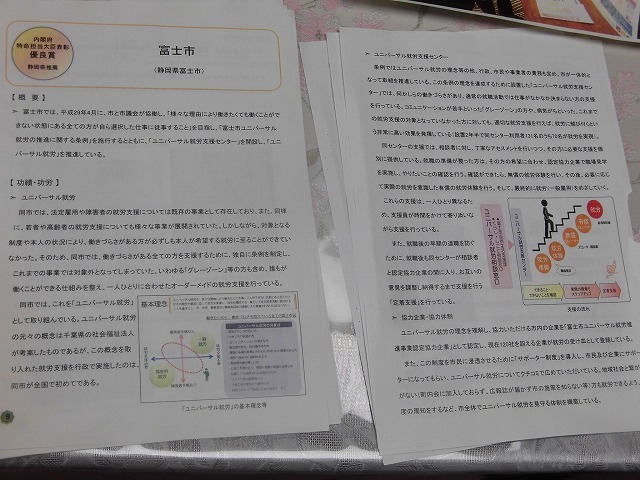 内閣府
特命担当大臣表彰
優良賞
静岡県推薦
富士市
（静岡県富士市）
【 概　要 】
➢ 富士市では、平成29年4月に、市と市議会が協働し、「様々な理由により働きたくても働くことが
できない状態にある全ての方が自ら選択した仕事に従事すること」を目指し、「富士市ユニバーサル
就労の推進に関する条例」を施行するとともに、「ユニバーサル就労支援センター」を開設し、「ユニ
バーサル就労」を推進している。
【 功績・功労 】
➢ ユニバーサル就労
同市では、法定雇用や障害者の就労支援については既存の事業として存在しており、また、同様
に、若者や高齢者の就労支援についても様々な事業が展開されていた。しかしながら、対象となる
制度や本人の状況により、働きづらさがある方が必ずしも本人が希望する就労に至ることができてい
なかった。そのため、同市では、働きづらさがある全ての方を支援するために、独自に条例を制定し、
これまでの事業では対象外となってしまっていた、いわゆる「グレーゾーン」等の方も含め、誰もが
働くことができる仕組みを整え、一人ひとりに合わせたオーダーメイドの就労支援を行っている。
同市では、これを「ユニバーサル就労」
として取り組んでいる。ユニバーサル就労
の元々の概念は千葉県の社会福祉法人
が考案したものであるが、この概念を取
り入れた就労支援を行政で実施したのは、
同市が全国で初めてである。
基本理念
一般就労
福祉的就労
「ユニバーサル就労」の基本理念等
9
➢ ユニバーサル就労支援センター
条例ではユニバーサル就労の理念等の他、行政、市民や事業者の責務を定め、市が一体的と
なって取組を推進している。この条例の理念を達成するために設置した「ユニバーサル就労支援セン
ター」では、何かしらの働きづらさがあり、通常の就職活動では仕事がなかなか決まらない方の支援
を行っている。コミュニケーションが苦手といった「グレーゾーン」の方や、病気がちといった、これまで
就労支援の対象となっていなかった方に対しても、適切な就労支援を行えば、就労に結び付くとい
う非常に高い効果を発揮している（設置2年半で同センター利用者131名のうち70名が就労を実現）。
同センターの支援では、相談者に対し、丁寧なアセスメントを行いつつ、その方に必要な支援を個
別に提供している。就職の準備が整った方は、その方の希望に合わせ、認定協力企業で職場見学
を実施し、やりたいことの確認を行う。確認ができたら、無償の就労体験を行い、その後、必要に応じ
て実際の就労を意識した有償の就労体験を行う。そして、最終的に就労（一般雇用）をめざしていく。
これらの支援は、一人ひとり異なるた
め、支援員が時間をかけて寄り添いな
がら支援を行っている。
また、就職後の早期の退職を防ぐ
ために、就職後も同センターが相談者
と認定協力企業の間に入り、お互いの
意見を調整し納得するまで支援を行う
「定着支援」を行っている。
ユニバーサル就労相談窓口
ユニバーサル就労支援センター
就労
定着支援
支援の流れ
➢ 協力企業・協力体制
ユニバーサル就労の理念を理解し、協力いただける市内の企業を「富士市ユニバーサル就労推
進事業認定協力企業」として認定し、現在120社を超える企業が就労の受け皿として登録している。
また、この制度を市民に浸透させるために「サポーター制度」を導入し、市民及び企業にサポー
ターになってもらい、ユニバーサル就労についてクチコミで広めていただいている。